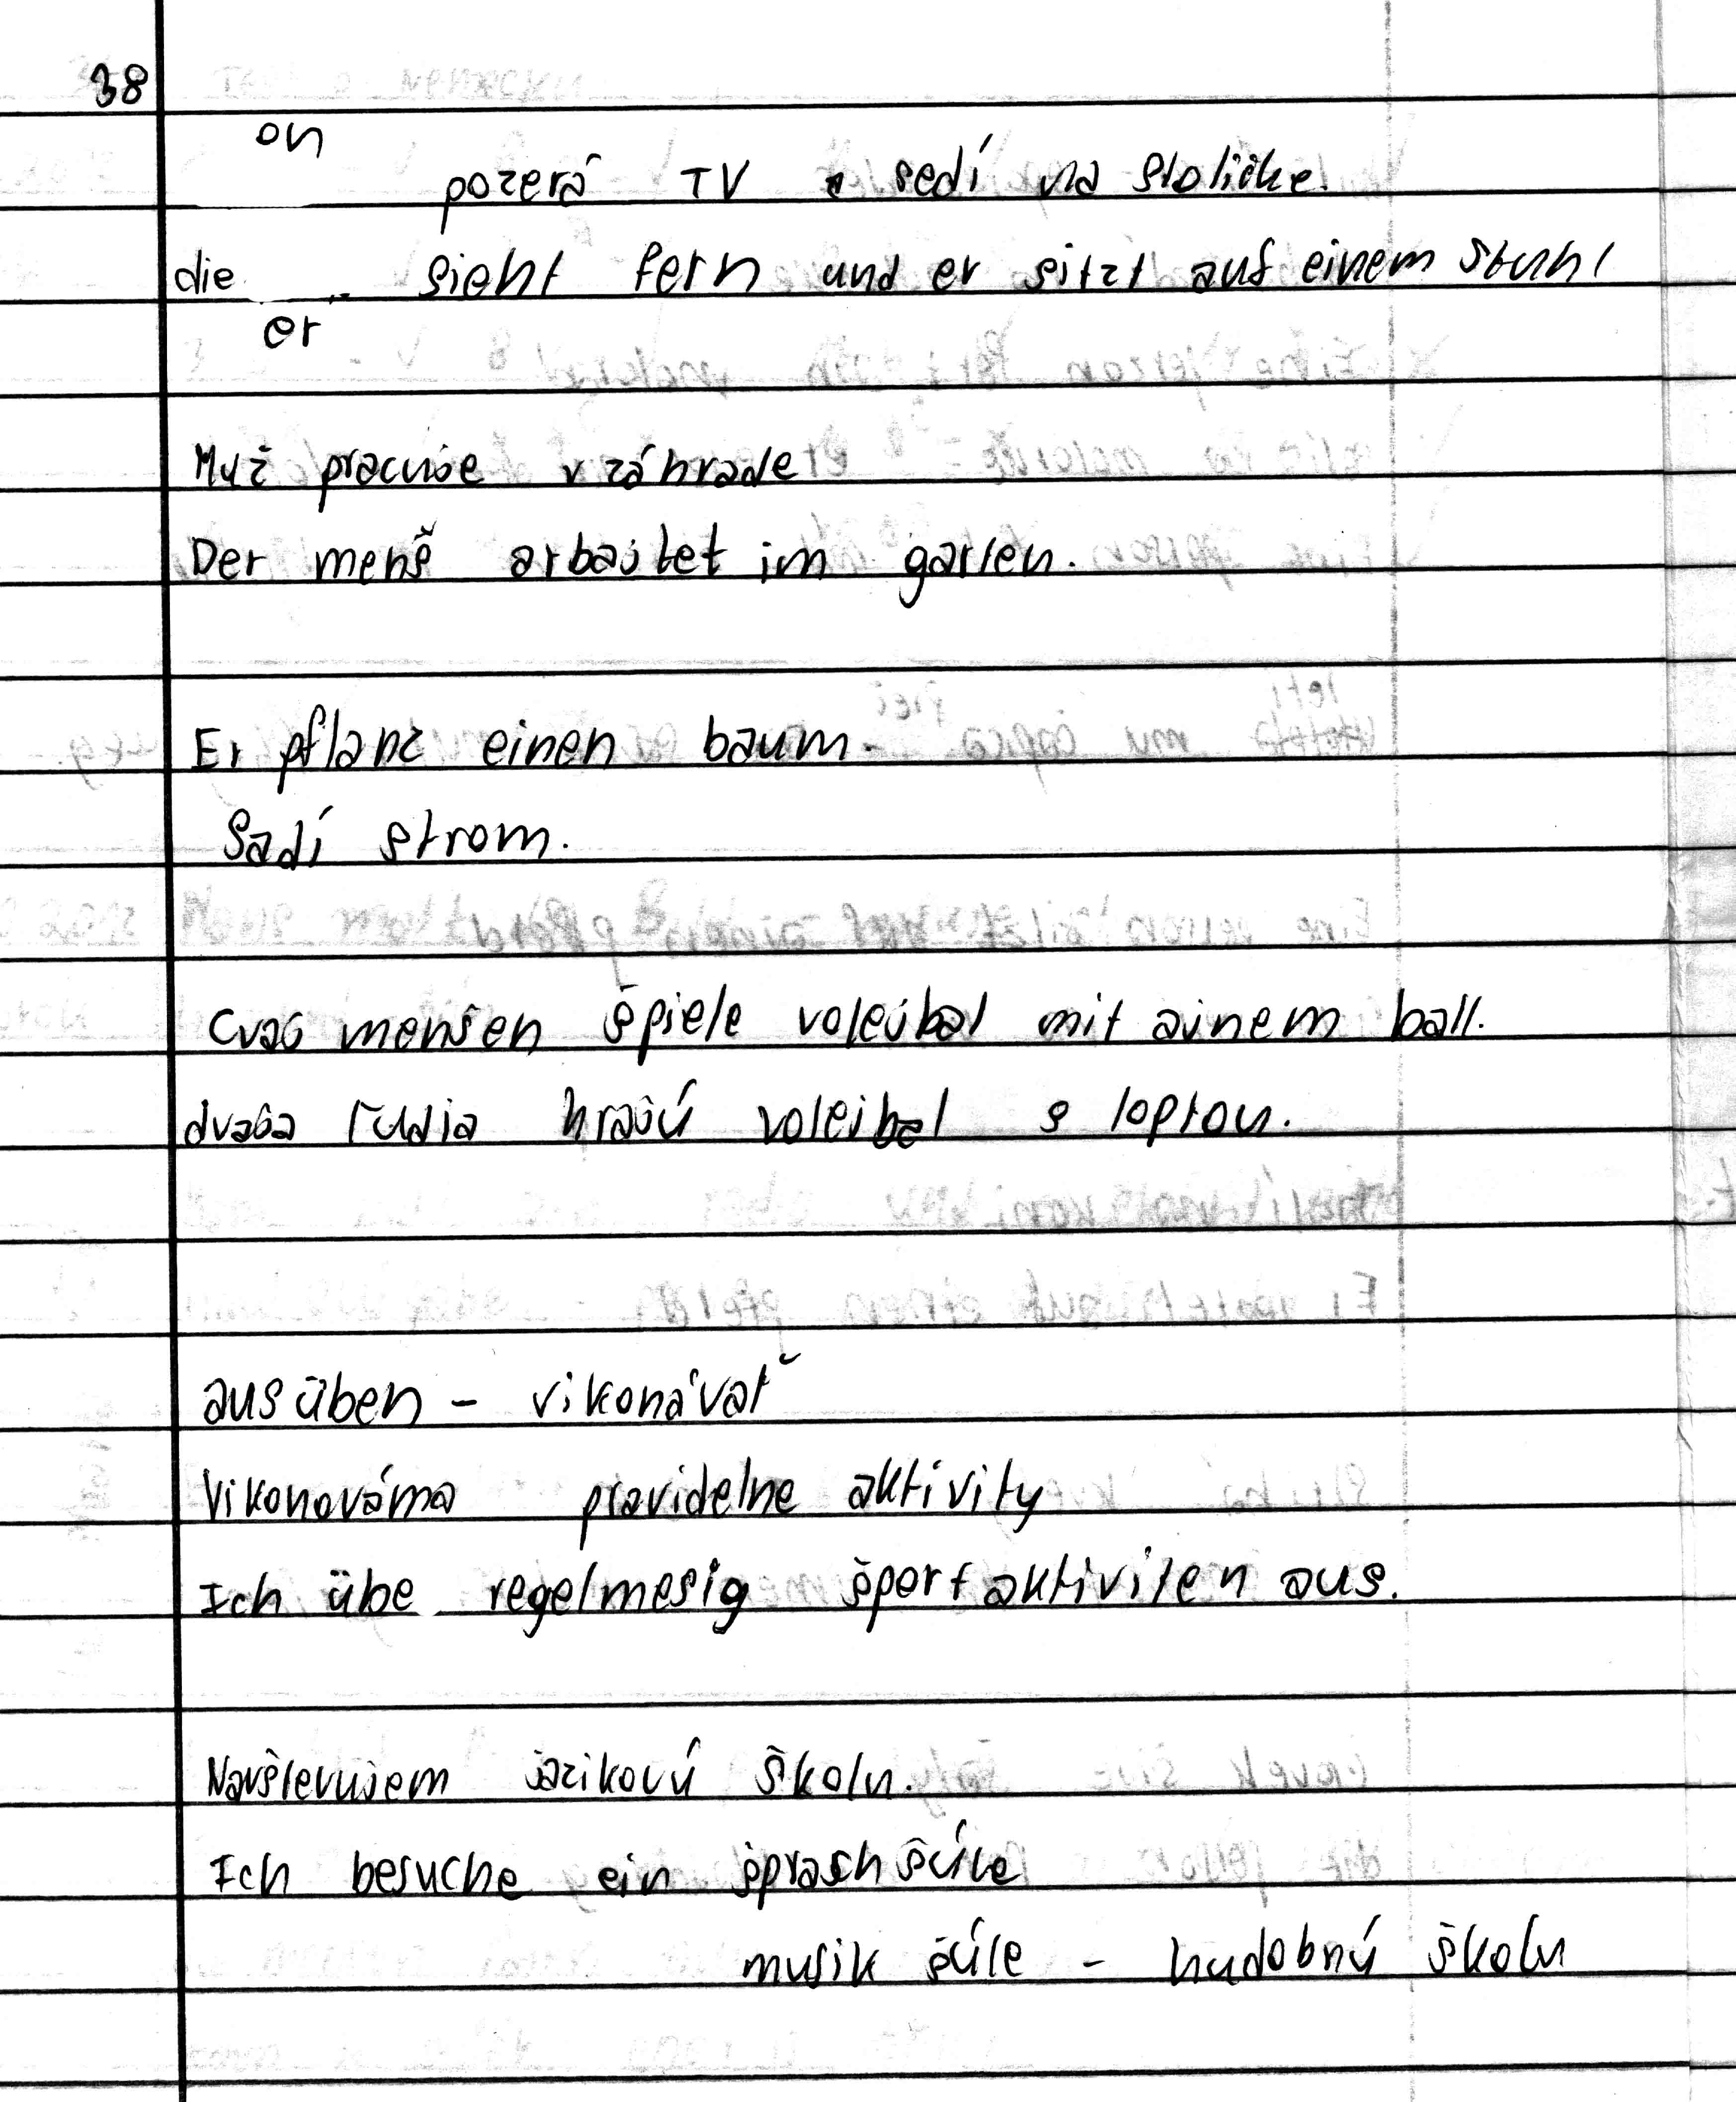 38
on
pozerá TV a sedí na stoličke.
die sieht fern und er sitzt auf einem stuhl
er
Muž pracuje v záhrade
Der menš arbajtet im garten.
Er pflanz einen baum.
Sadí strom.
Cvaj menšen špiele volejbal mit ajnem ball.
dvaja ľudia hrajú volejbal s loptou.
ausüben - vikonávať
Vikonováma pravidelne aktivity
Ich übe regelmesig športaktiviten aus.
Navšlevujem jazikovú školu.
Ich besuche ein šprach šúle
musik šúle - hudobnú školu